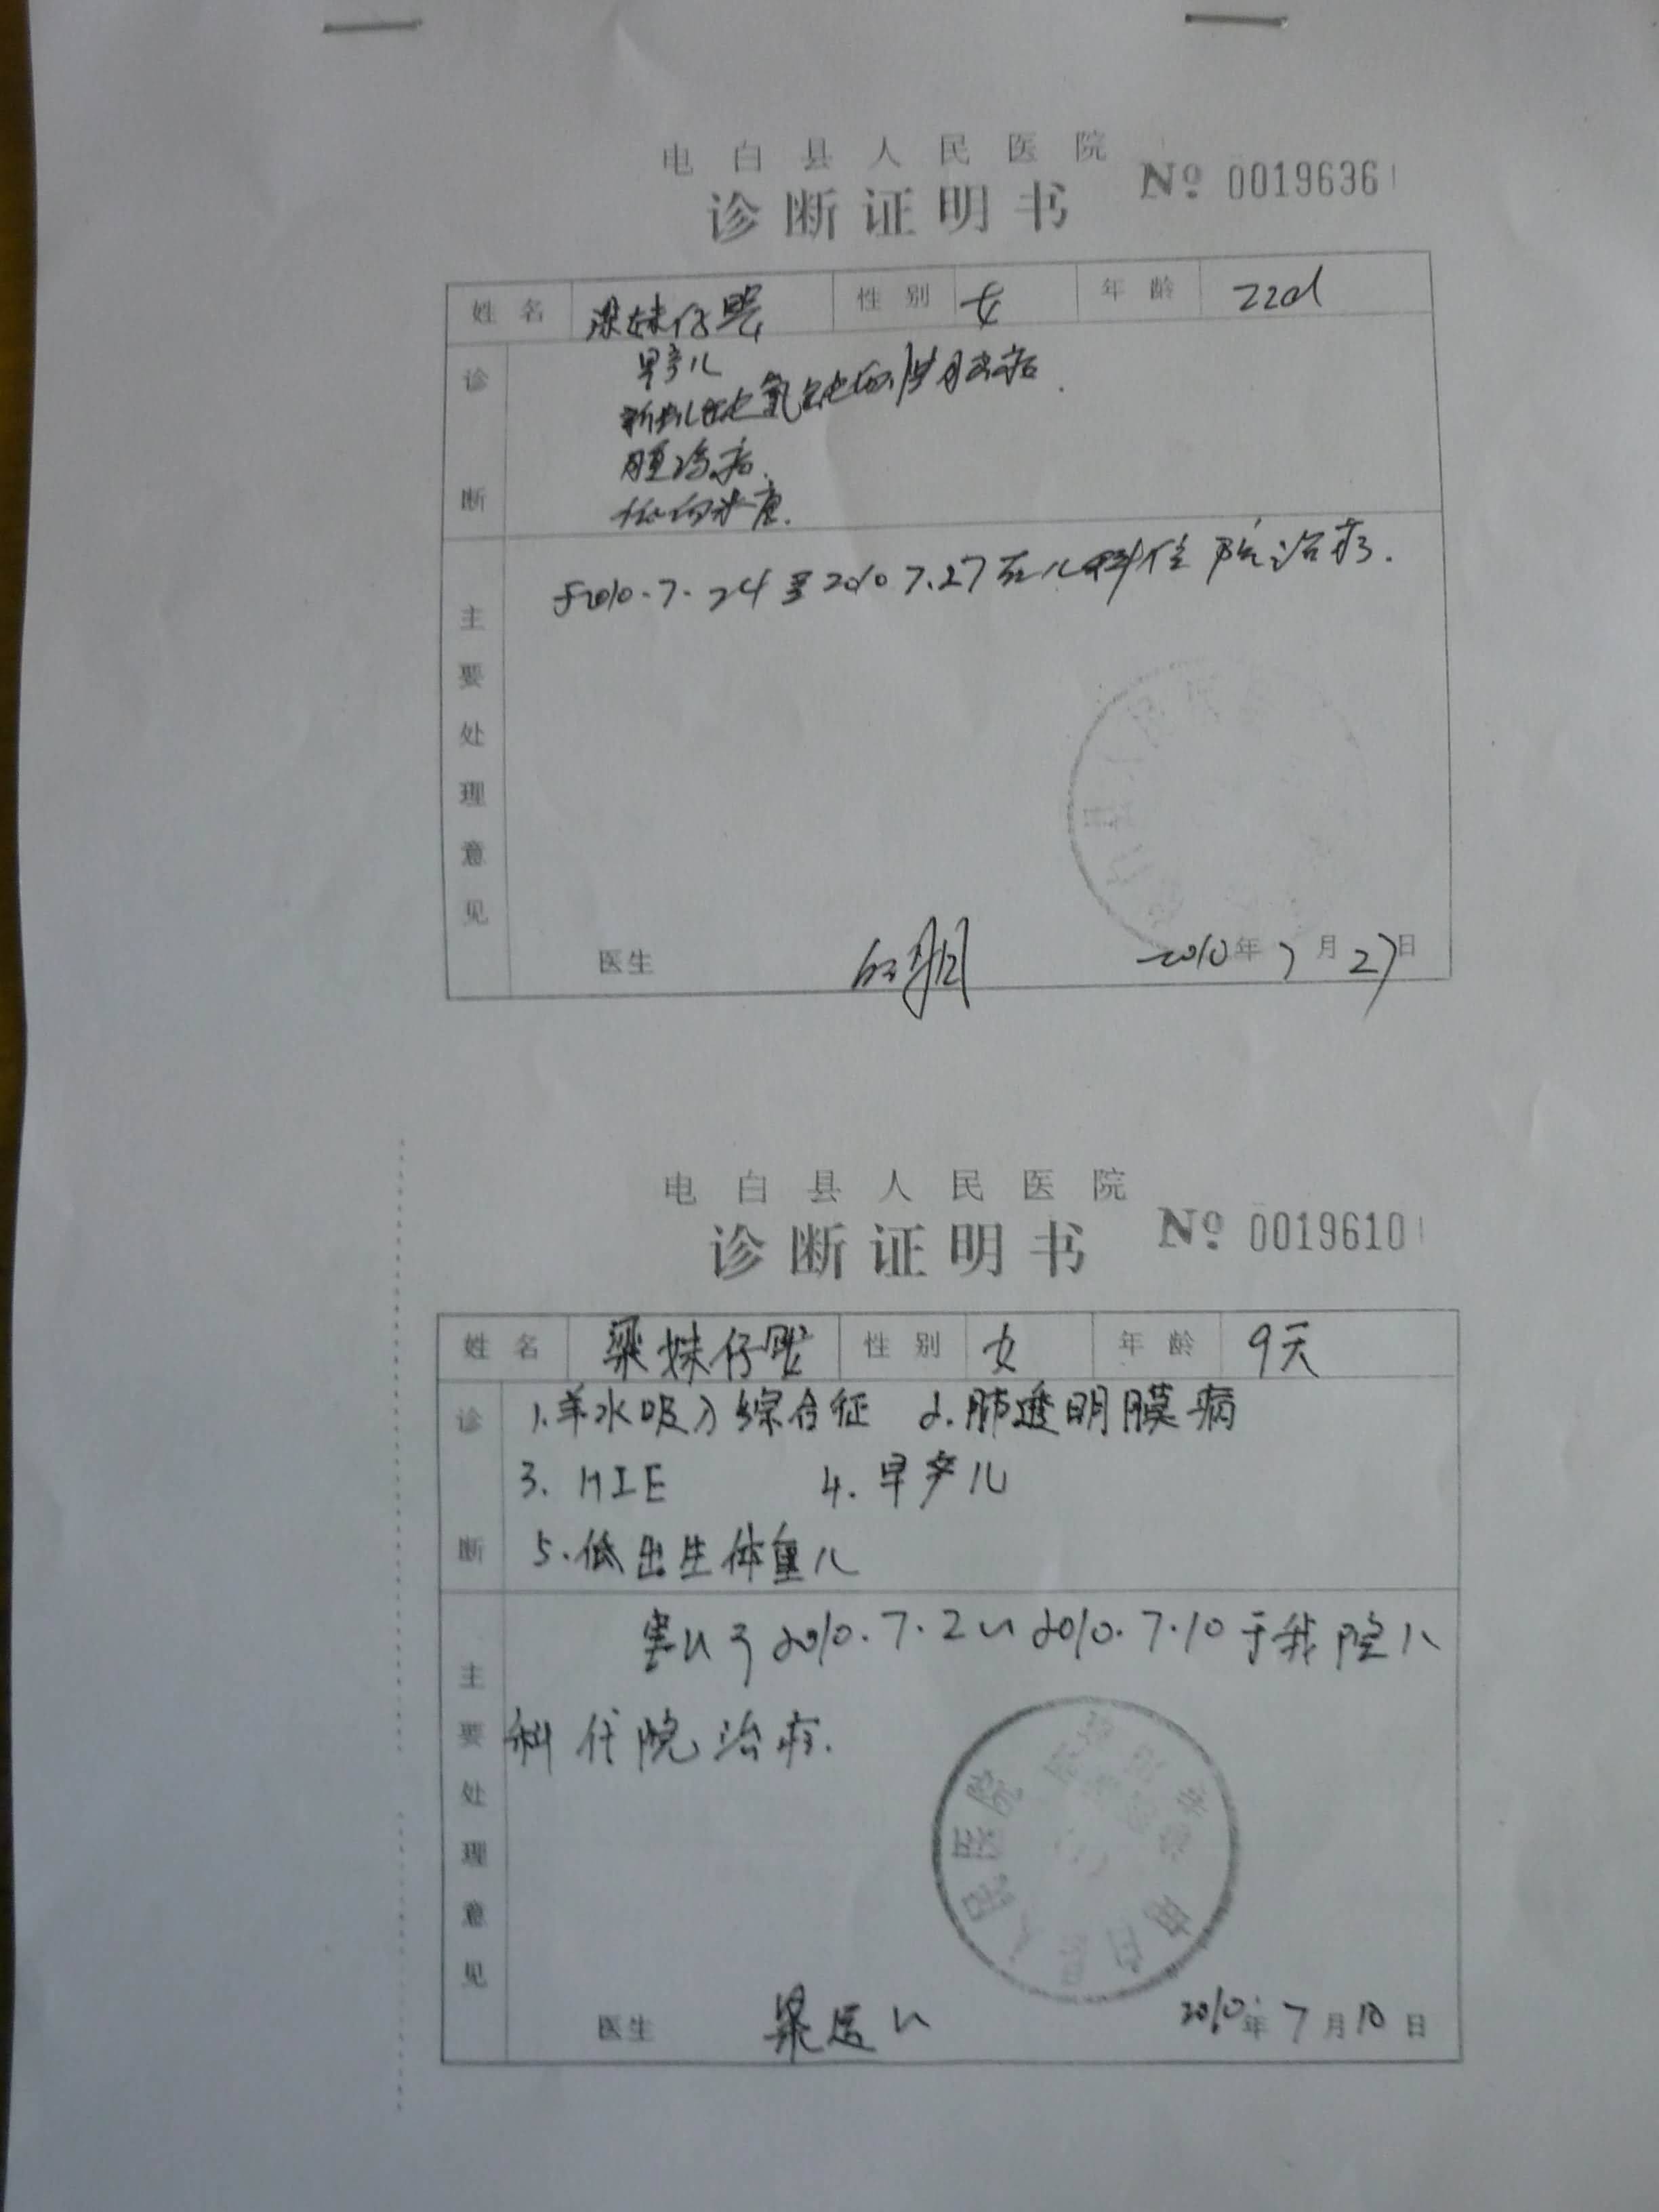 电白县人民医院
诊断证明书 No 0019636
姓名 梁妹仔 性别 女 年龄 22d
诊断
早产儿
新生儿缺氧缺血性脑病
肿
于2010.7.24至2010.7.27在儿科住院治疗.
主要处理意见
医生 2010年7月27日
电白县人民医院
诊断证明书 No 0019610
姓名 梁妹仔 性别 女 年龄 9天
诊断
1.羊水吸入综合征 2.肺透明膜病
3. HIE 4.早产儿
5.低出生体重儿
患儿于2010.7.2～2010.7.10于我院儿
科住院治疗.
主要处理意见
电白县人民医院
医生 梁 2010年7月10日